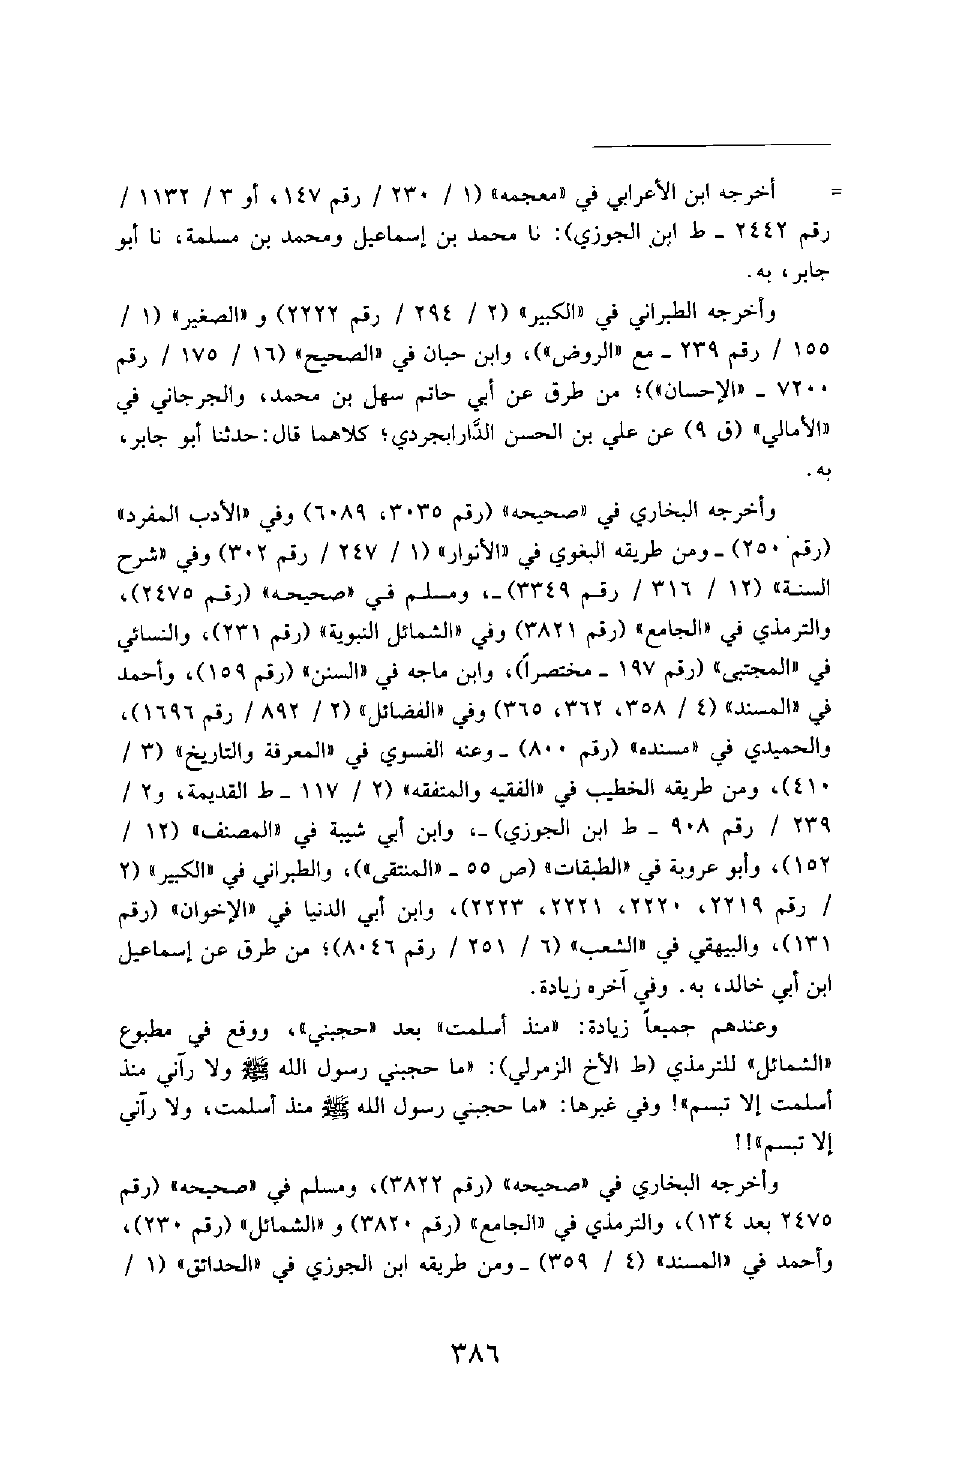 = أخرجه ابن الأعرابي في «معجمه» (١ / ٢٣٠ / رقم ١٤٧، أو ٣ / ١١٣٢ /
رقم ٢٤٤٢ ـ ط ابن الجوزي): نا محمد بن إسماعيل ومحمد بن مسلمة، نا أبو
جابر، به.
وأخرجه الطبراني في «الكبير» (٢ / ٢٩٤ / رقم ٢٢٢٢) و «الصغير» (١ /
١٥٥ / رقم ٢٣٩ ـ مع «الروض»)، وابن حبان في «الصحيح» (١٦ / ١٧٥ / رقم
٧٢٠٠ ـ «الإحسان»)؛ من طرق عن أبي حاتم سهل بن محمد، والجرجاني في
«الأمالي» (ق ٩) عن علي بن الحسن الدَّارابجردي؛ كلاهما قال: حدثنا أبو جابر،
به.
وأخرجه البخاري في «صحيحه» (رقم ٣٠٣٥، ٦٠٨٩) وفي «الأدب المفرد»
(رقم ٢٥٠) ـ ومن طريقه البغوي في «الأنوار» (١ / ٢٤٧ / رقم ٣٠٢) وفي «شرح
السنة» (١٢ / ٣١٦ / رقم ٣٣٤٩) ـ، ومسلم في «صحيحه» (رقم ٢٤٧٥)،
والترمذي في «الجامع» (رقم ٣٨٢١) وفي «الشمائل النبوية» (رقم ٢٣١)، والنسائي
في «المجتبى» (رقم ١٩٧ ـ مختصراً)، وابن ماجه في «السنن» (رقم ١٥٩)، وأحمد
في «المسند» (٤ / ٣٥٨، ٣٦٢، ٣٦٥) وفي «الفضائل» (٢ / ٨٩٢ / رقم ١٦٩٦)،
والحميدي في «مسنده» (رقم ٨٠٠) ـ وعنه الفسوي في «المعرفة والتاريخ» (٣ /
٤١٠)، ومن طريقه الخطيب في «الفقيه والمتفقه» (٢ / ١١٧ ـ ط القديمة، و٢ /
٢٣٩ / رقم ٩٠٨ ـ ط ابن الجوزي) ـ، وابن أبي شيبة في «المصنف» (١٢ /
١٥٢)، وأبو عروبة في «الطبقات» (ص ٥٥ ـ «المنتقى»)، والطبراني في «الكبير» (٢
/ رقم ٢٢١٩، ٢٢٢٠، ٢٢٢١، ٢٢٢٣)، وابن أبي الدنيا في «الإخوان» (رقم
١٣١)، والبيهقي في «الشعب» (٦ / ٢٥١ / رقم ٨٠٤٦)؛ من طرق عن إسماعيل
ابن أبي خالد، به. وفي آخره زيادة.
وعندهم جميعاً زيادة: «منذ أسلمت» بعد «حجبني»، ووقع في مطبوع
«الشمائل» للترمذي (ط الأخ الزمرلي): «ما حجبني رسول الله ﷺ ولا رآني منذ
أسلمت إلا تبسم»! وفي غيرها: «ما حجبني رسول الله ﷺ منذ أسلمت، ولا رآني
إلا تبسم»!!
وأخرجه البخاري في «صحيحه» (رقم ٣٨٢٢)، ومسلم في «صحيحه» (رقم
٢٤٧٥ بعد ١٣٤)، والترمذي في «الجامع» (رقم ٣٨٢٠) و «الشمائل» (رقم ٢٣٠)،
وأحمد في «المسند» (٤ / ٣٥٩) ـ ومن طريقه ابن الجوزي في «الحدائق» (١ /
٣٨٦